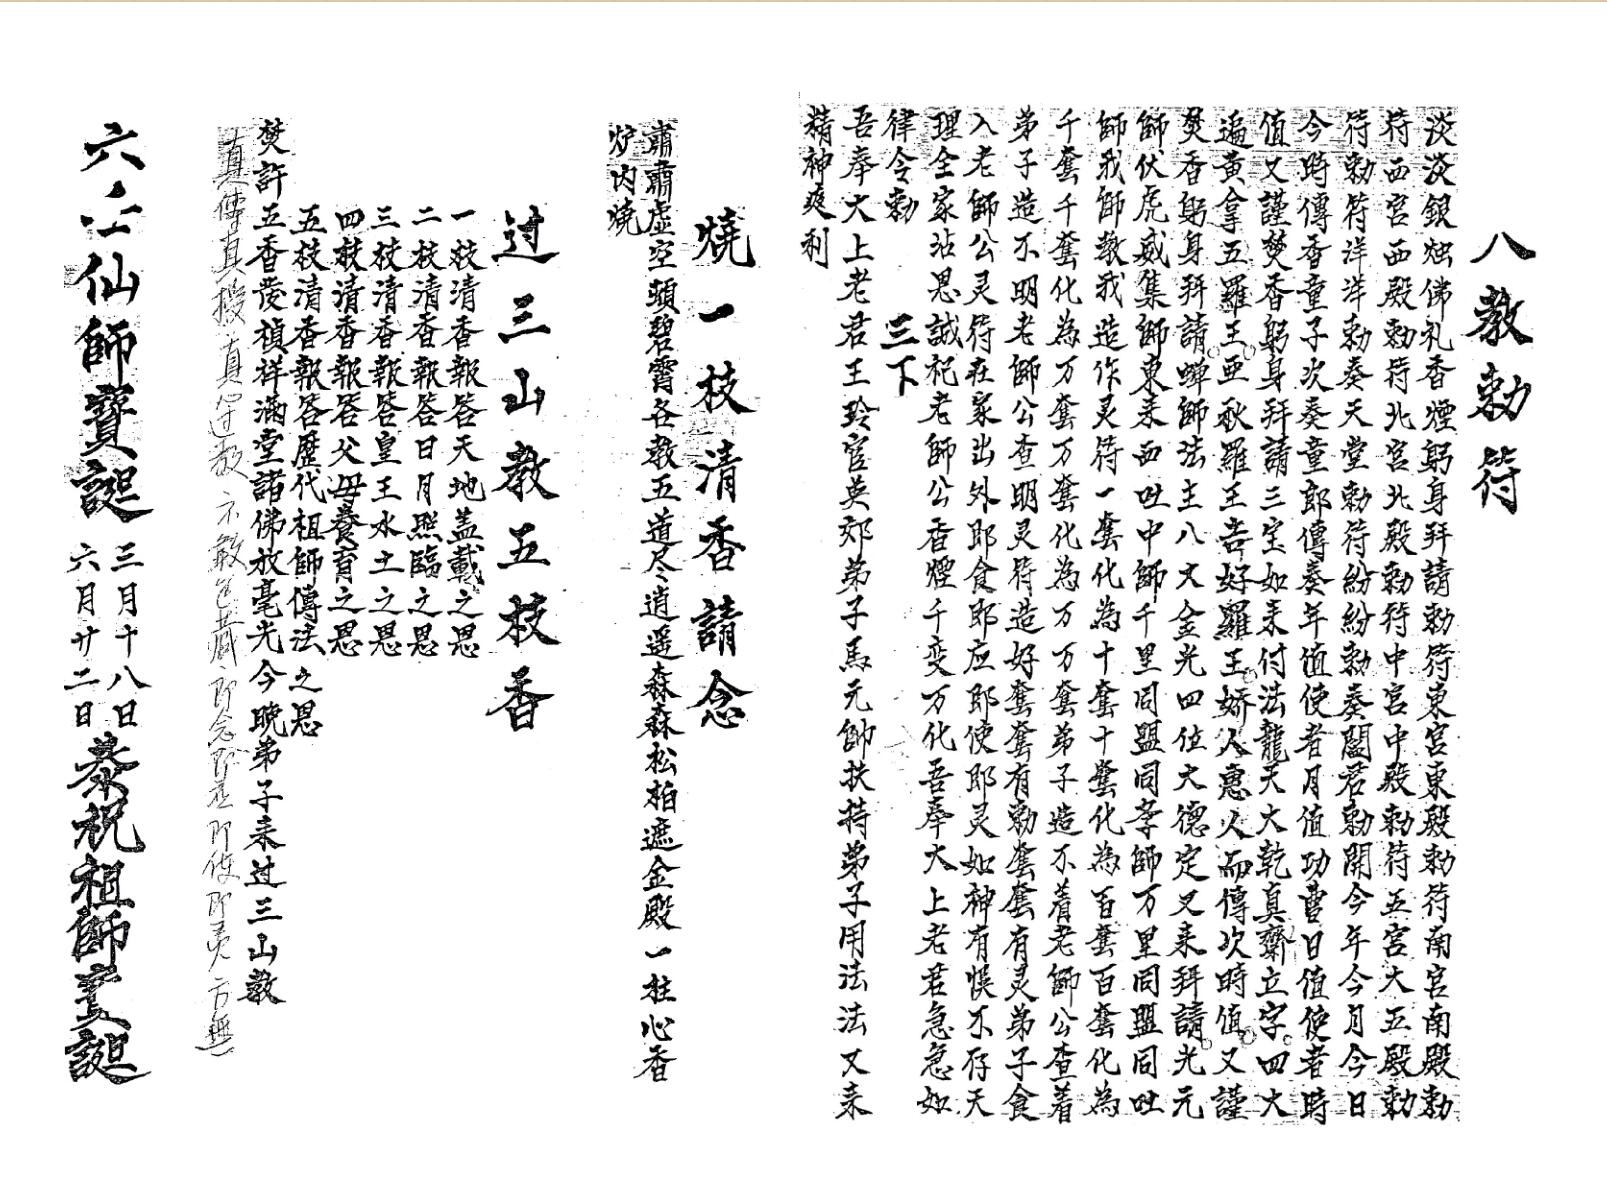 八教勅符
淡淡銀烛佛礼香煙躬身拜請勅符東宮東殿勅符南宮南殿勅
符西宮西殿勅符北宮北殿勅符中宮中殿勅符五宮大五殿勅
符勅符洋洋勅奏天堂勅符紛紛勅奏閻君勅開今年今月今日
今時傳香童子次奏童郎傳奏年值使者月值功曹日值使者時
值又謹焚香躬身拜請三宝如来付法龍天大乾真齋立字四大
遍黄拿五羅王亜秋羅王吉好羅王嬌人惠人而傳次時值又謹
焚香躬身拜請蝉師法主八大金光四位大德定又来拜請光元
師伏虎威集師東来西吐中師千里同盟同孝師万里同盟同吐
師我師教我造作灵符一套化為十套十套化為百套百套化為
千套千套化為万套万套化為万万套弟子造不着老師公查着
弟子造不明老師公查明灵符造好套套有勅套套有灵弟子食
入老師公灵符在家出外耶食耶应耶使耶灵如神有悞不存天
理全家沾恩誠祀老師公香煙千变万化吾奉大上老君急急如
律令勅　三下
吾奉大上老君王玲官英郊弟子馬元帥扶持弟子用法法又来
精神爽利
燒一枝清香請念
肅肅虚空頭碧霄各教五道尽逍遥森森松柏遮金殿一拄心香
炉内燒
过三山教五枝香
一枝清香報答天地盖載之恩
二枝清香報答日月照臨之恩
三枝清香報答皇王水土之恩
四枝清香報答父母養育之恩
五枝清香報答歷代祖師傳法之恩
焚許五香发禎祥滿堂諸佛放毫光今晚弟子来过三山教
真傳真授真心过教不敢包藏即念即應即使即灵方無
六仙師寶誕
三月十八日
六月廿二日
恭祝祖師寶誕